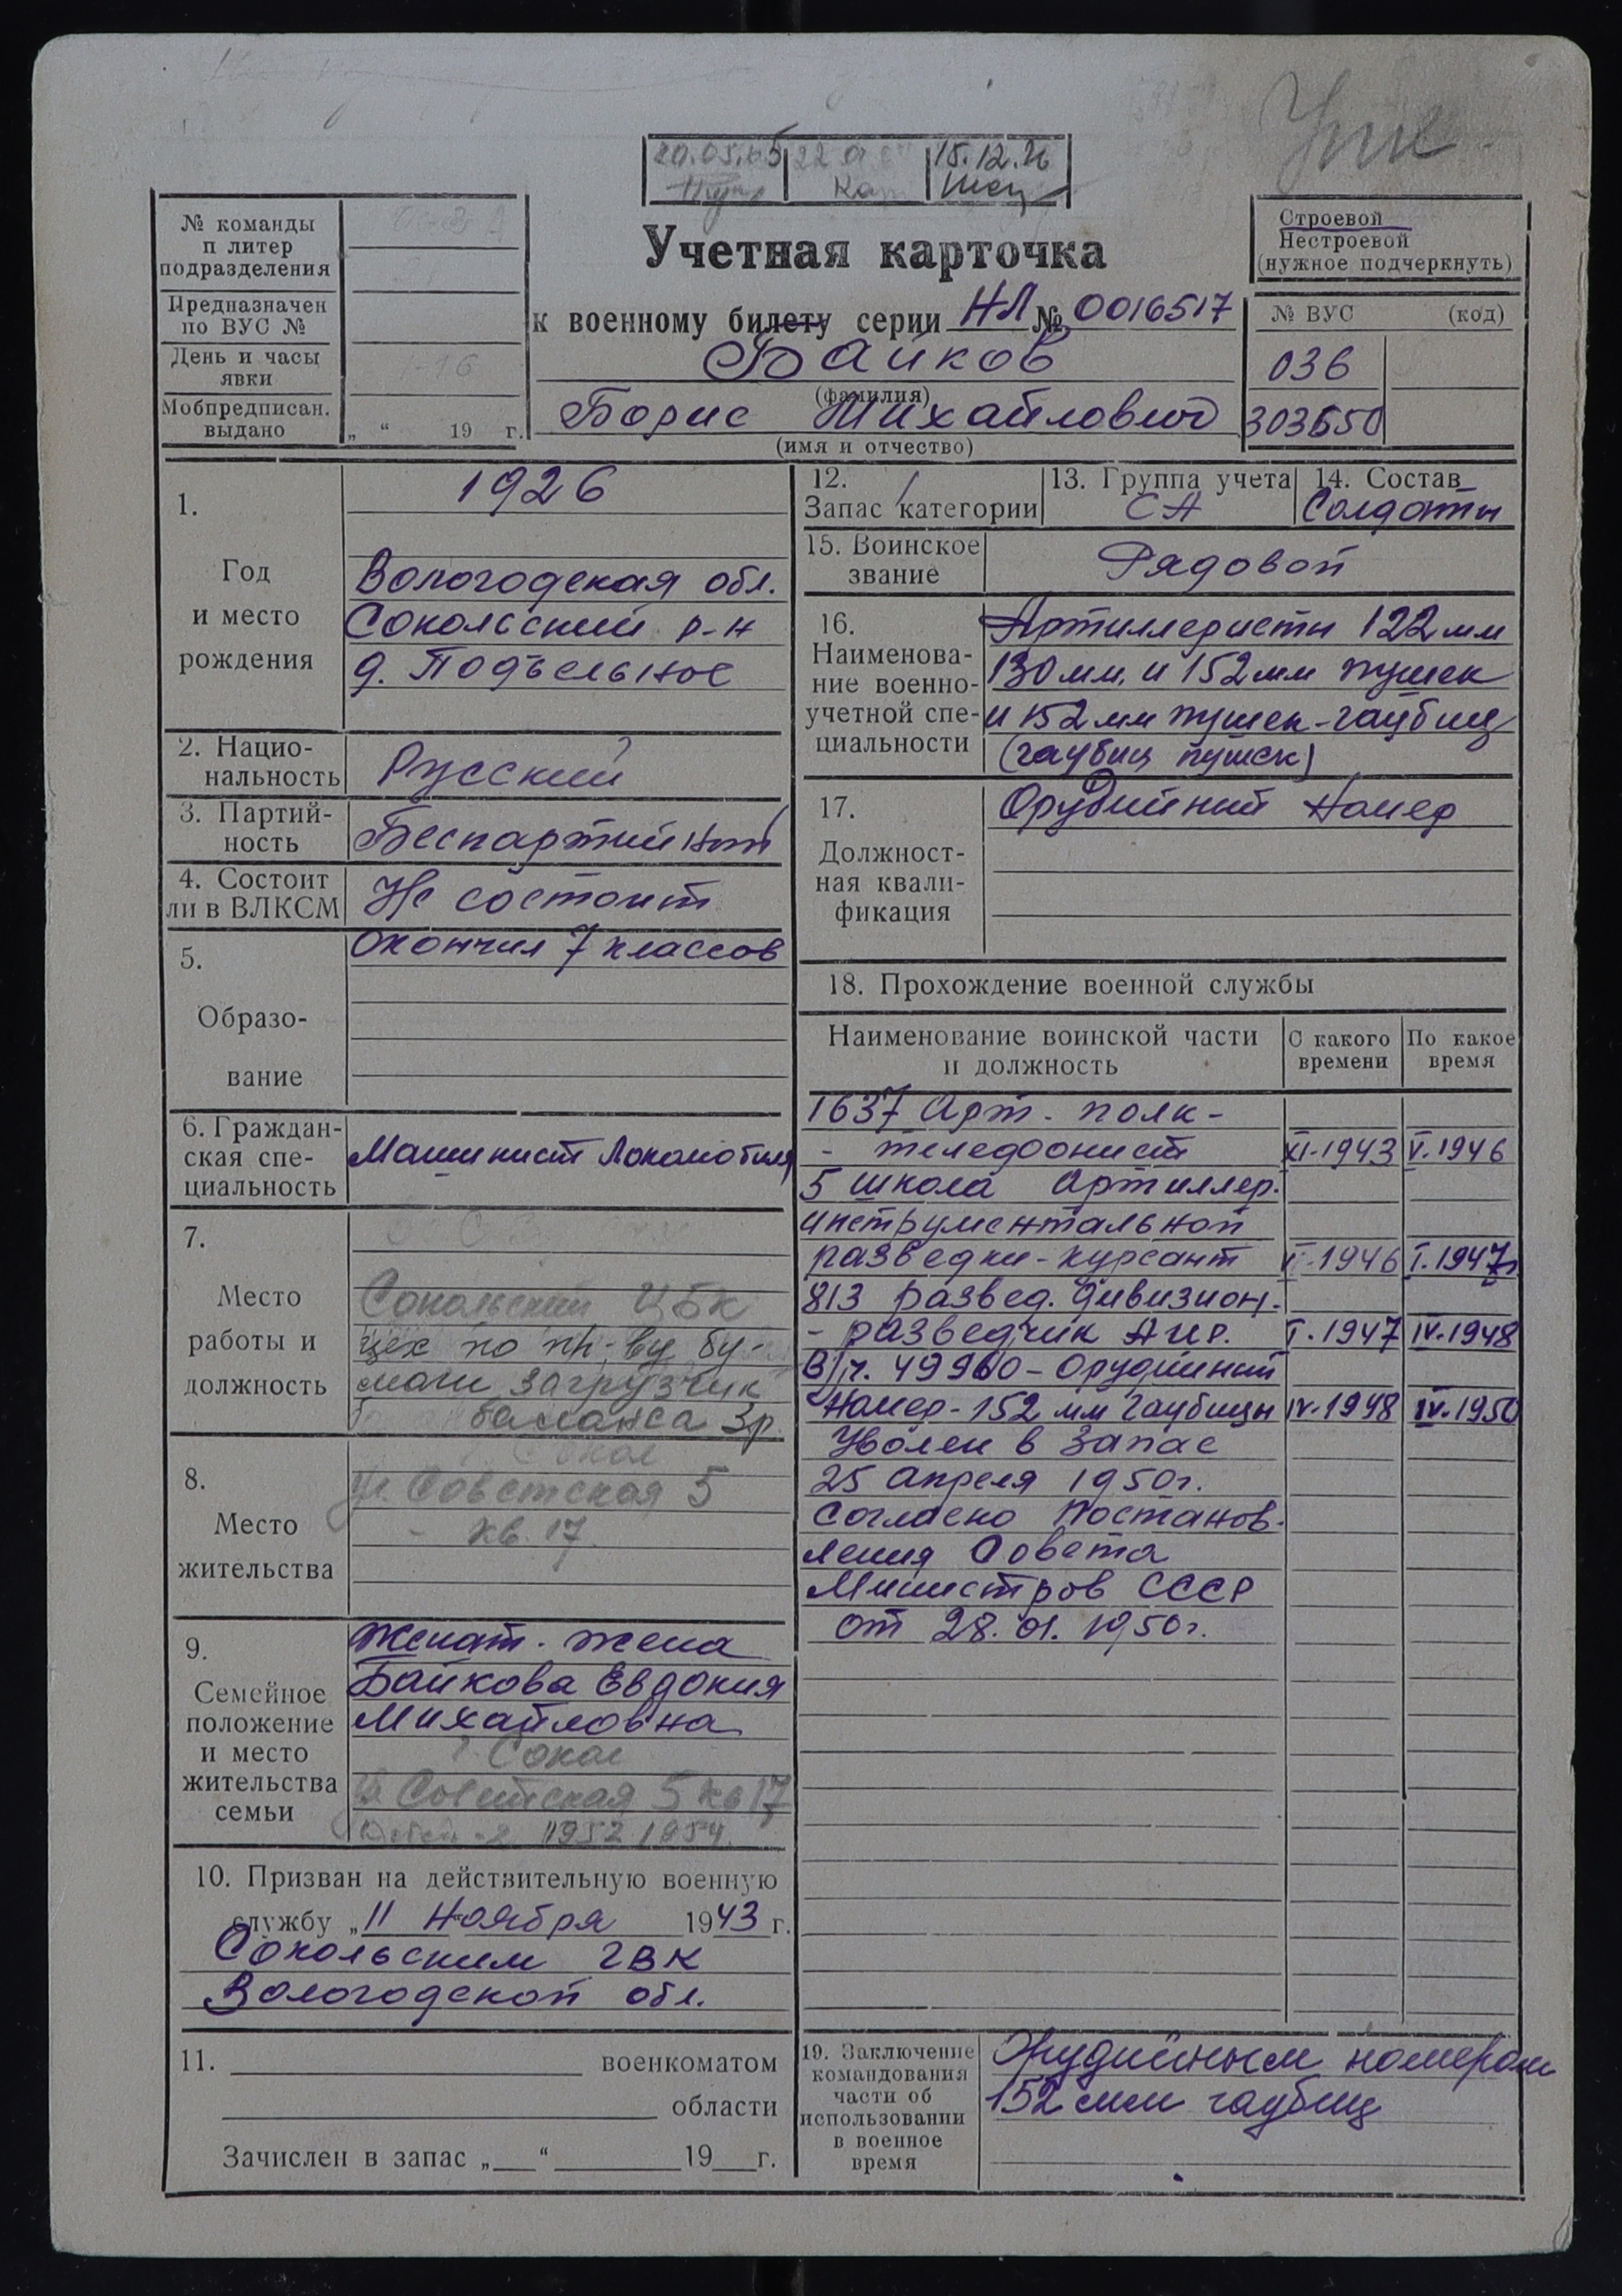 15.12.76
№ команды
п литер
подразделения
Предназначен
по ВУС №
День и часы
явки
Мобпредписан.
выдано
„ “ 19 г.
Учетная карточка
к военному билету серии НЛ № 0016517
Байков
(фамилия)
Борис Михайлович
(имя и отчество)
Строевой
Нестроевой
(нужное подчеркнуть)
№ ВУС (код)
036
303650
1.
Год
и место
рождения
1926
Вологодская обл.
Сокольский р-н
д. Подъельное
2. Нацио-
нальность
Русский
3. Партий-
ность
Беспартийный
4. Состоит
ли в ВЛКСМ
Не состоит
5.
Образо-
вание
Окончил 7 классов
6. Граждан-
ская спе-
циальность
Машинист Локомобиля
7.
Место
работы и
должность
Сокольский ЦБК
цех по пр-ву бу-
маги загрузчик
баланса 3р.
8.
Место
жительства
Сокол
ул. Советская 5
- кв. 17.
9.
Семейное
положение
и место
жительства
семьи
Женат. жена
Байкова Евдокия
Михайловна
г. Сокол
ул Советская 5 кв 17
1952 1954.
10. Призван на действительную военную
службу „11 Ноября 1943 г.
Сокольским ГВК
Вологодской обл.
11. военкоматом
области
Зачислен в запас „ “ 19 г.
12.
Запас 1 категории
13. Группа учета
СА
14. Состав
Солдаты
15. Воинское
звание
Рядовой
16.
Наименова-
ние военно-
учетной спе-
циальности
Артиллеристы 122 мм
130 мм. и 152 мм пушек
и 152 мм пушек-гаубиц
(гаубиц пушек)
17.
Должност-
ная квали-
фикация
Орудийный Номер
18. Прохождение военной службы
Наименование воинской части
и должность
С какого
времени
По какое
время
1637 Арт. полк-
- телефонист XI-1943 V.1946
5 школа Артиллер.
инструментальной
разведки-курсант V-1946 I.1947г
813 развед. дивизион.
- разведчик АИР. I.1947 IV-1948
В/ч. 49960 - Орудийный
Номер-152 мм гаубицы IV-1948 IV.1950
Уволен в запас
25 апреля 1950г.
Согласно Постанов-
ления Совета
Министров СССР
от 28.01.1950г.
19. Заключение
командования
части об
использовании
в военное
время
Орудийным номером
152 мм гаубиц